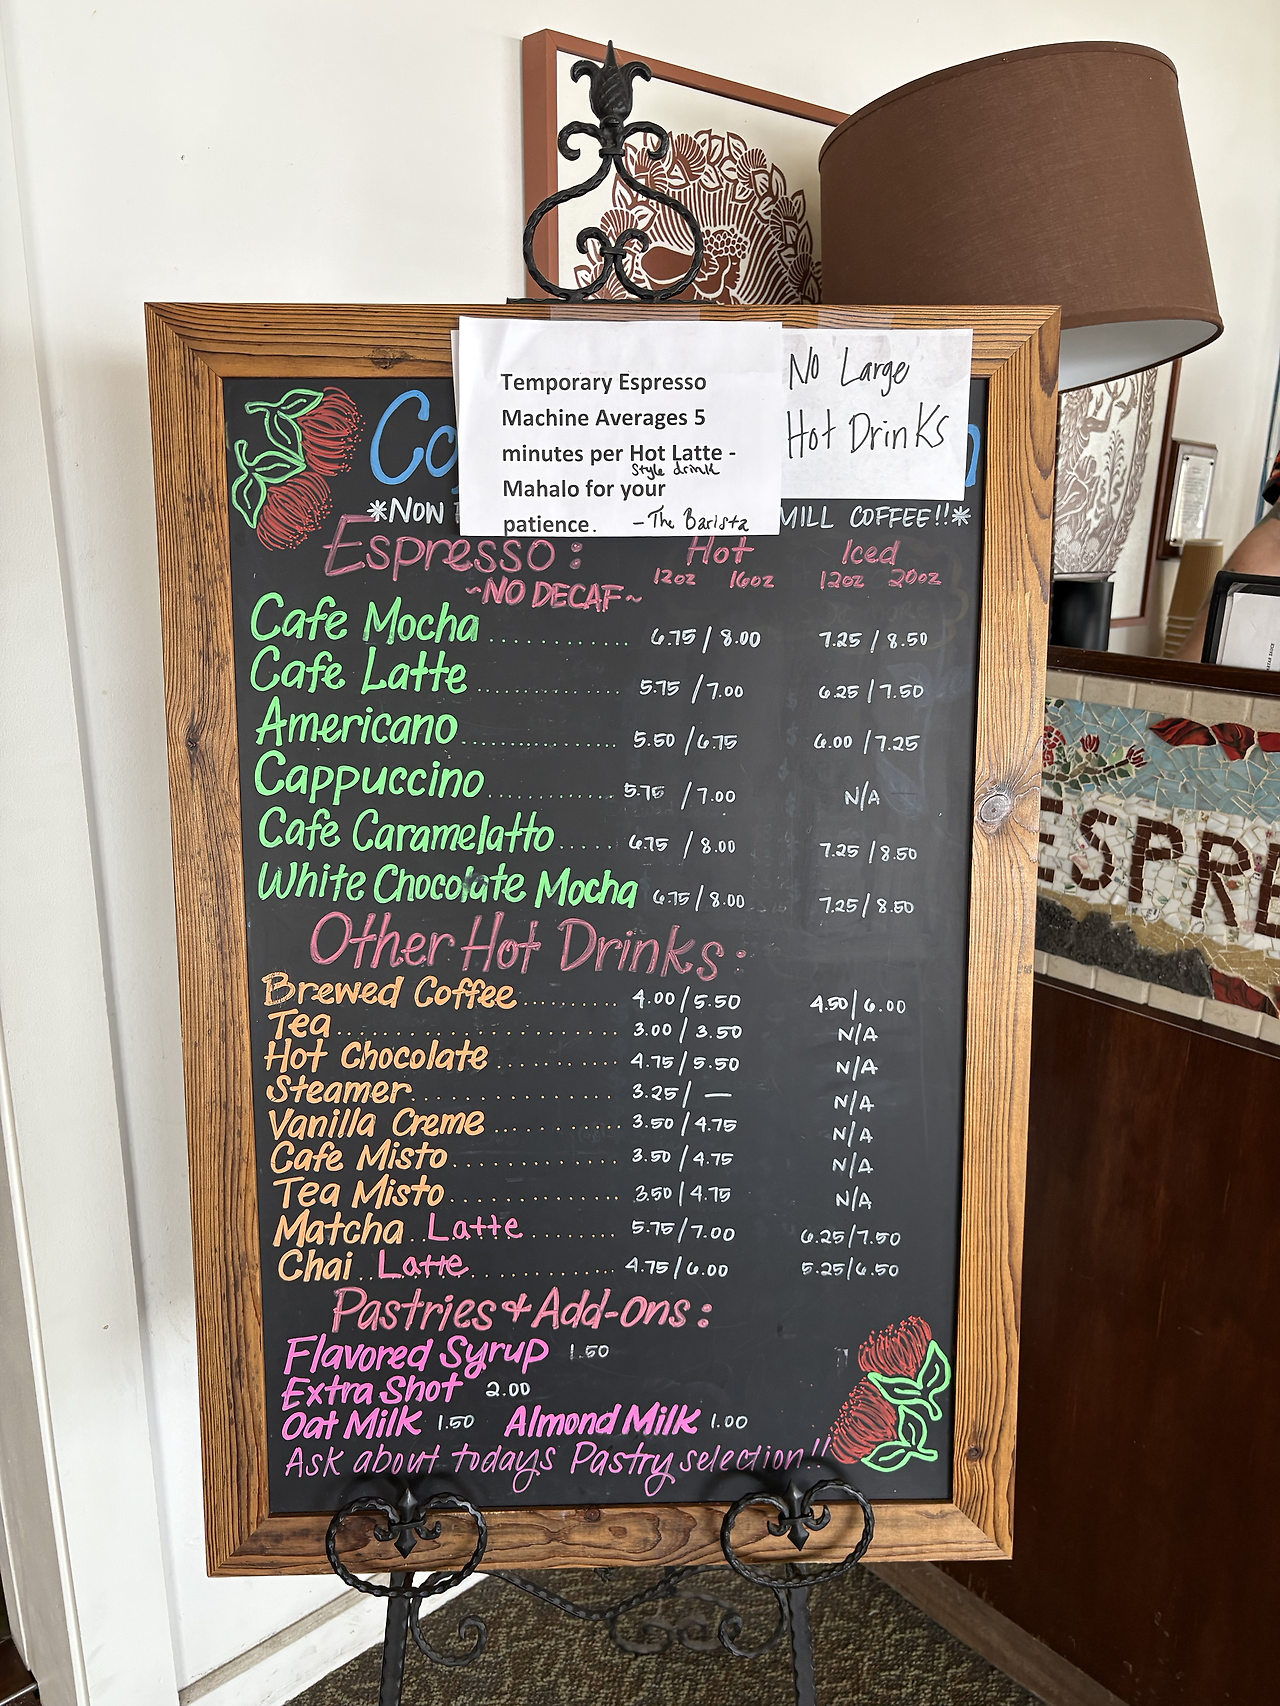 Temporary Espresso
Machine Averages 5
minutes per Hot Latte -
style drink
Mahalo for your
patience. - The Barista
No Large
Hot Drinks
Co
*NOW
MILL COFFEE!!*
Espresso: Hot Iced
12oz 16oz 12oz 20oz
~NO DECAF~
Cafe Mocha 6.75 / 8.00 7.25 / 8.50
Cafe Latte 5.75 / 7.00 6.25 / 7.50
Americano 5.50 / 6.75 6.00 / 7.25
Cappuccino 5.75 / 7.00 N/A
Cafe Caramelatto 6.75 / 8.00 7.25 / 8.50
White Chocolate Mocha 6.75 / 8.00 7.25 / 8.50
Other Hot Drinks:
Brewed Coffee 4.00 / 5.50 4.50 / 6.00
Tea 3.00 / 3.50 N/A
Hot Chocolate 4.75 / 5.50 N/A
Steamer 3.25 / — N/A
Vanilla Creme 3.50 / 4.75 N/A
Cafe Misto 3.50 / 4.75 N/A
Tea Misto 3.50 / 4.75 N/A
Matcha Latte 5.75 / 7.00 6.25 / 7.50
Chai Latte 4.75 / 6.00 5.25 / 6.50
Pastries & Add-Ons:
Flavored Syrup 1.50
Extra Shot 2.00
Oat Milk 1.50 Almond Milk 1.00
Ask about todays Pastry selection!!
ESPRE